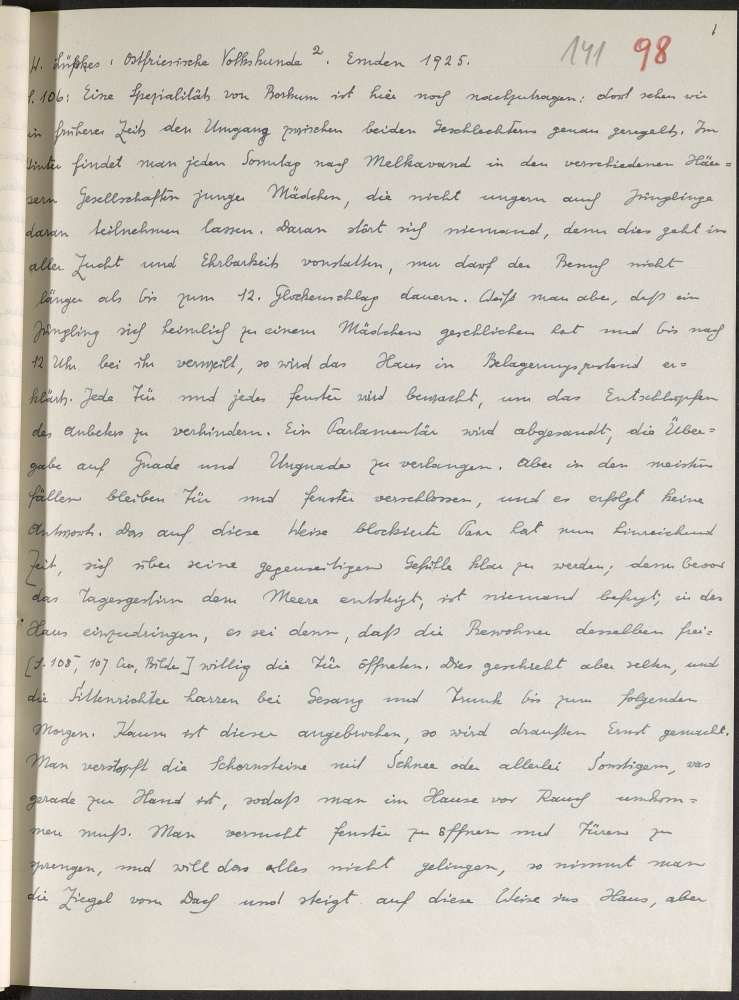 1
141 98
H. Lübbes: Ostfriesische Volkskunde ². Emden 1925.
S. 106: Eine Spezialität von Borkum ist hier noch nachzutragen: dort sehen wir
in früherer Zeit den Umgang zwischen beiden Geschlechtern genau geregelt. Im
Winter findet man jeden Sonntag nach Melkavand in den verschiedenen Häu=
sern Gesellschaften junger Mädchen, die nicht ungern auch Jünglinge
daran teilnehmen lassen. Daran stört sich niemand, denn dies geht in
aller Zucht und Ehrbarkeit vonstatten, nur darf der Besuch nicht
länger als bis zum 12. Glockenschlag dauern. Weiß man aber, daß ein
Jüngling sich heimlich zu einem Mädchen geschlichen hat und bis nach
12 Uhr bei ihr verweilt, so wird das Haus in Belagerungszustand er=
klärt. Jede Tür und jedes Fenster wird bewacht, um das Entschlüpfen
des Anbeters zu verhindern. Ein Parlamentär wird abgesandt, die Über=
gabe auf Gnade und Ungnade zu verlangen. Aber in den meisten
Fällen bleiben Tür und Fenster verschlossen, und es erfolgt keine
Antwort. Das auf diese Weise blockierte Paar hat nun hinreichend
Zeit, sich über seine gegenseitigen Gefühle klar zu werden; denn bevor
das Tagesgestirn dem Meere entsteigt, ist niemand befugt, in das
Haus einzudringen, es sei denn, daß die Bewohner desselben frei=
[S. 108, 107 Bilder] willig die Tür öffneten. Dies geschieht aber selten, und
die Sittenrichter harren bei Gesang und Trunk bis zum folgenden
Morgen. Kaum ist dieser angebrochen, so wird draußen Ernst gemacht.
Man verstopft die Schornsteine mit Schnee oder allerlei Sonstigem, was
gerade zur Hand ist, sodaß man im Hause vor Rauch umkom=
men muß. Man versucht Fenster zu öffnen und Türen zu
sprengen, und will das alles nicht gelingen, so nimmt man
die Ziegel vom Dach und steigt auf diese Weise ins Haus, aber